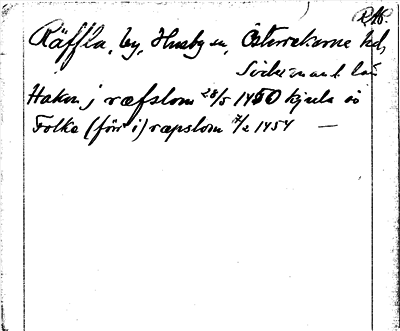 R16.
Räffla, by, Husby sn, Österrekarne hd,
Södermanl. län
Hakon j ræfslom 28/5 1450 hjula so
Folke (förr i) ræpslom 7/2 1454 —